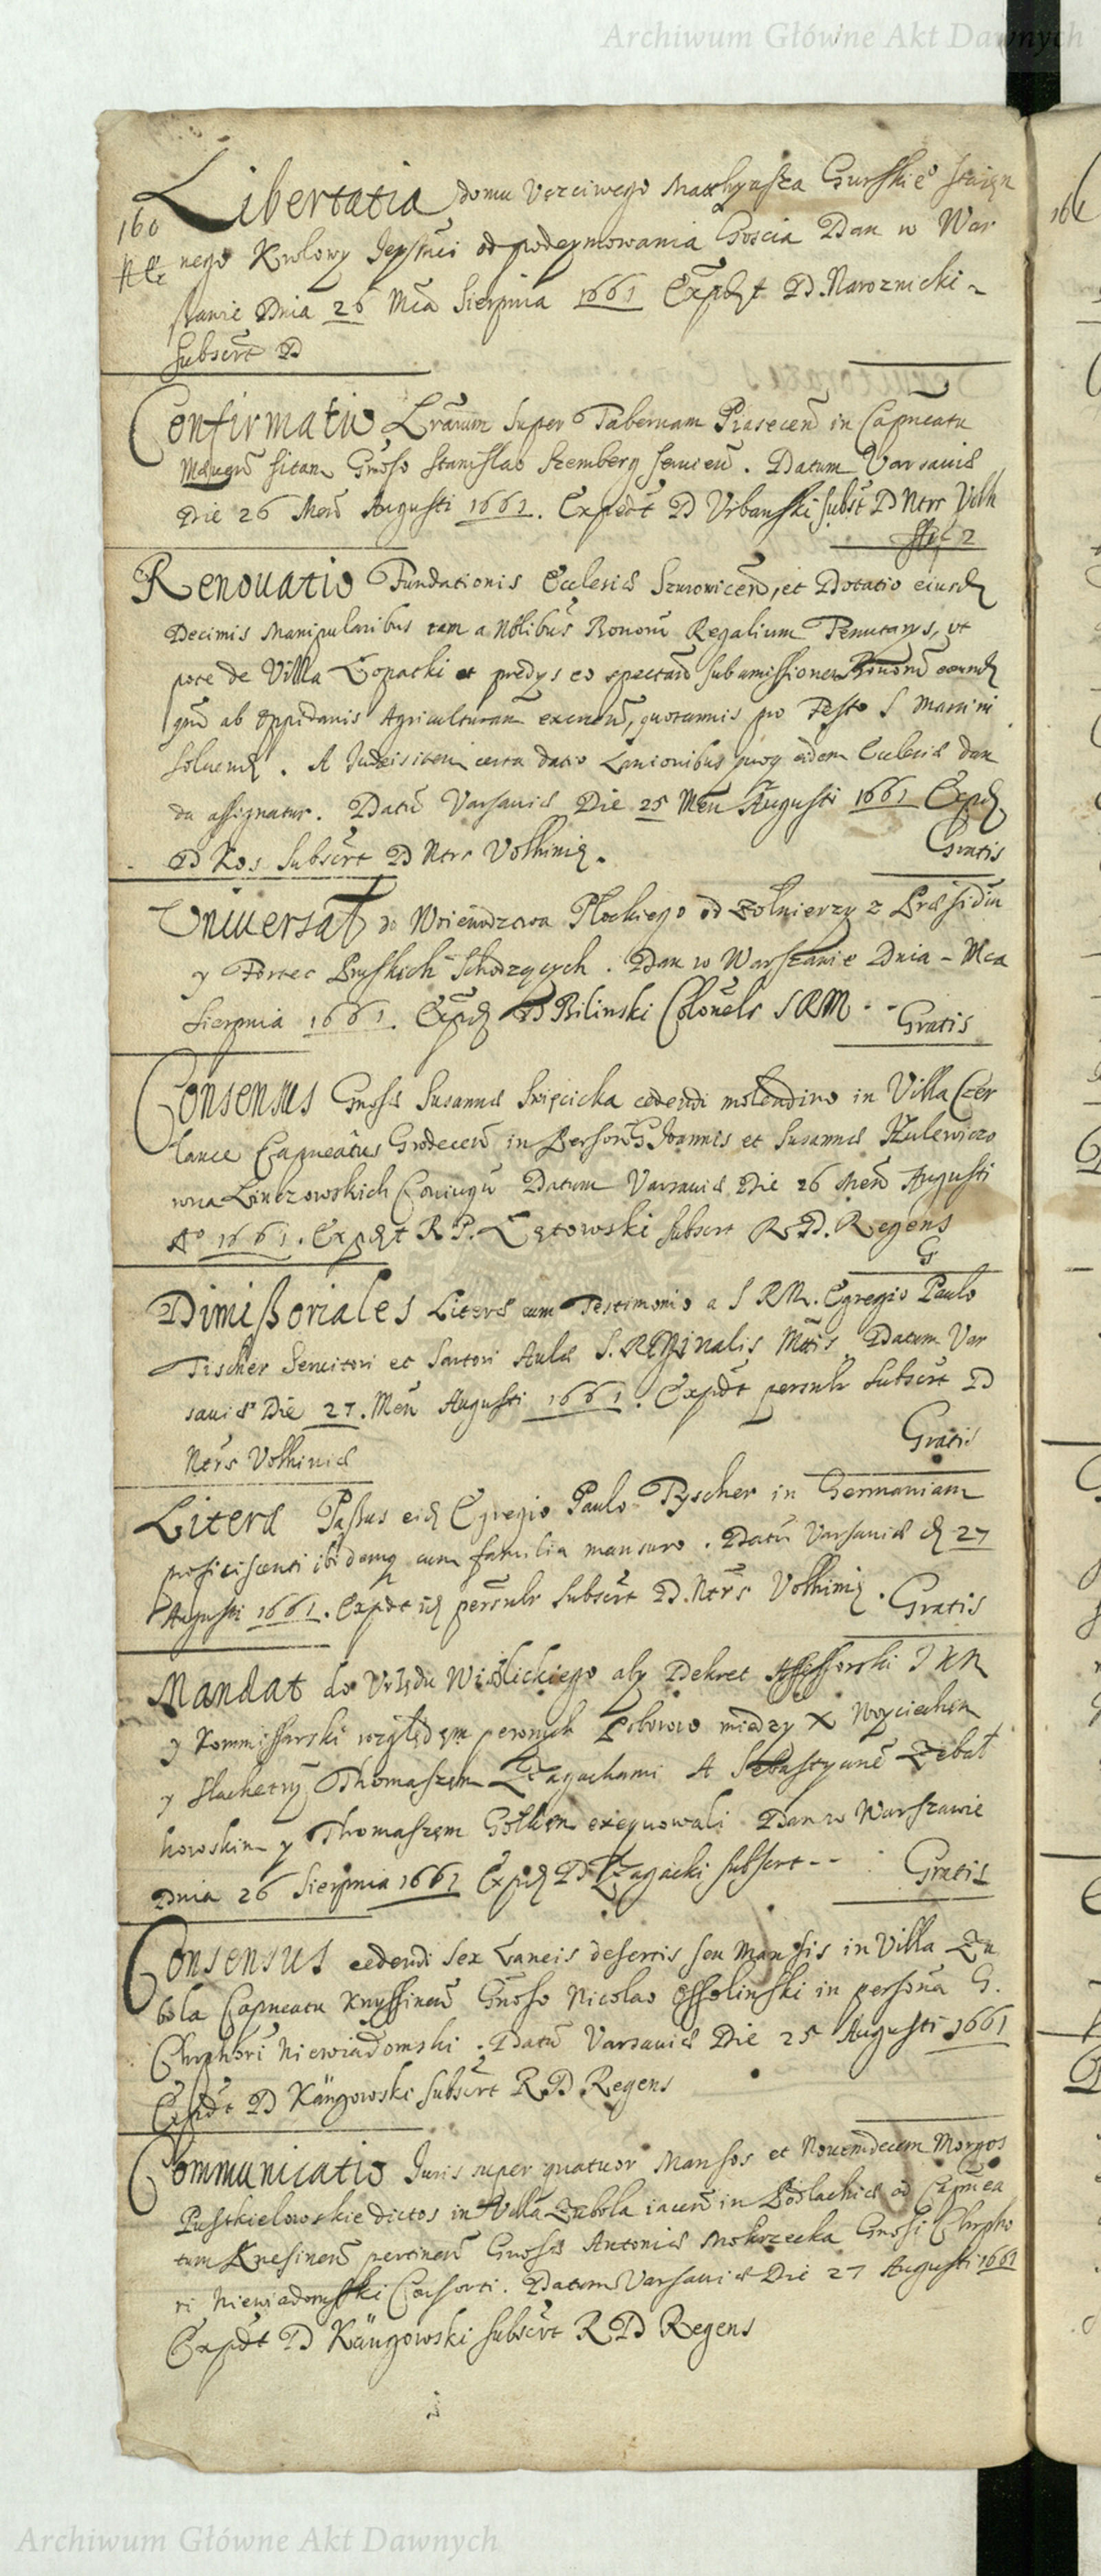 Archiwum Główne Akt Dawnych
Libertatia domu Uczciwego Matthyasza Gurskie͠o
160
nego Krolowy Jeymci od podeymowania Goscia Dan w War
szawie Dnia 26 Mca Sierpnia 1661 Expdt D. Naroznicki
Subscrt D
Confirmatio Lrarum super Tabernam Piasecen in Capneatu
sitam Gnoso Stanislao Szemberg servien. Datum Varsaviæ
Die 26 Men Augusti 1661. Expedt D Urbanski subst D Ntrs Volh
Renovatio Fundationis Ecclesiæ Szurowicen, et Dotatio eiusd
Decimis Manipularibus tam a Nobilibus Bonoru Regalium Tenutarys, ut
pote de Villa Lopatki et prædys eo spectan sub amissione Bonorũ eorund
qm ab Oppidanis Agriculturam exercen, quotannis pro Festo S Martini
solvend. A Judæis item certa datio Lanionibus eidem Ecclesiæ dan
da assignatur. Datũ Varsaviæ Die 25 Men Augusti 1661 Expd
D Kos Subscrt D Ntrs Volhiniæ.
Gratis
Uniwersał do Woiewodztwa Plockiego od Zołnierzy z Præsidiu
y Fortec Pruskich Schodzących. Dan w Warszawie Dnia - Mca
Sierpnia 1661. Expd D Bilinski Colonels SRM - - Gratis
Consensus Gnosæ Susannæ Swięcicka cedendi molendino in Villa Czer
lance Capneatus Grodecen in Person G Joannis et Susannæ Kulewiczo
wna Lenczowskich Coniugũ Datum Varsaviæ Die 26 Men Augusti
Ao 1661. Expdt R. P. Lętowski Subscrt R. D. Regens
G
Dimissoriales Literæ cum Testimonio a S RM. Egregio Paulo
Tischer Servitori et Sartori Aulæ S. Reginalis Mtis Datum Var
saviæ Die 27. Men Augusti 1661. Expdt persulr Subscrt D
Ntrs Volhiniæ
Gratis
Literæ Passus eid Egregio Paulo Tyscher in Germaniam
proficiscenti ibidemq cum familia mansuro. Datũ Varsaviæ d 27
Augusti 1661. Expdt id persulr Subscrt D. Ntrs Volhiniæ. Gratis
Mandat do Urzędu Wislickiego aby Dekret Assessorski J K M
y Kommissarski względem pewnych Poborow między X Woyciechem
y Slachetny Thomaszem Zagackami A Sebastyanẽ Zebal
kowskim y Thomaszem Golken exequowali Dan w Warszawie
Dnia 26 Sierpnia 1661 Expd D Zagacki subscrt - - Gratis
Consensus cedendi sex Laneis desertis seu Mansis in Villa Zu
bola Capneatu Knyssinen Gnoso Nicolao Ossolinski in persona G.
Chrphori Niewiadomski. Datũ Varsaviæ Die 25 Augusti 1661
Expdt D Kängowski subscrt R. D Regens
Communicatio Juris super quatuor Mansos et Novemdecem Morgos
Pustkielowskie dictos in Villa Zubola iacen in Podlachiæ ad Capnea
tum Knesinen pertinen Gnosæ Antoniæ Mokrzecka Gnosi Chrpho
ri Niewiadomski Consorti. Datum Varsaviæ Die 27 Augusti 1661
Expdt D Kängowski subscrt R D Regens
Archiwum Główne Akt Dawnych